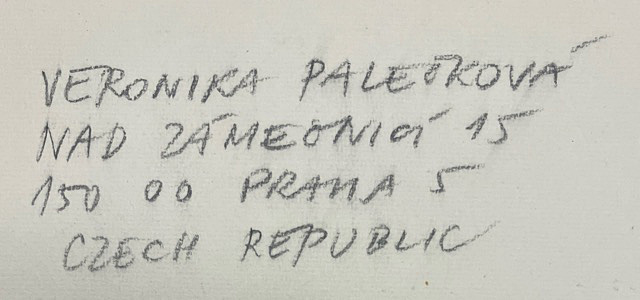 VERONIKA PALEČKOVÁ
NAD ZÁMEČNICÍ 15
150 00 PRAHA 5
CZECH REPUBLIC